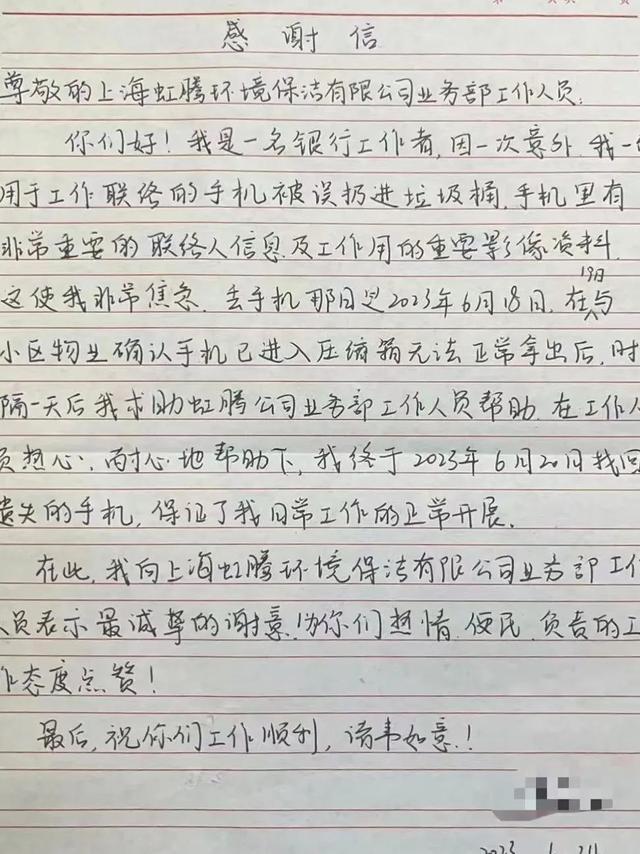 感谢信
尊敬的上海虹腾环境保洁有限公司业务部工作人员:
你们好!我是一名银行工作者,因一次意外,我一
用于工作联络的手机被误扔进垃圾桶,手机里有
非常重要的联络人信息及工作用的重要影像资料,
这使我非常焦急,丢手机那日是2023年6月18日,在
19日
与
小区物业确认手机已进入压缩箱无法正常拿出后,时
隔一天后我求助虹腾公司业务部工作人员帮助,在工作人
员热心、耐心地帮助下,我终于2023年6月20日找回
遗失的手机,保证了我日常工作的正常开展。
在此,我向上海虹腾环境保洁有限公司业务部工作
人员表示最诚挚的谢意!为你们热情、便民、负责的工
作态度点赞!
最后,祝你们工作顺利,诸事如意!
2023